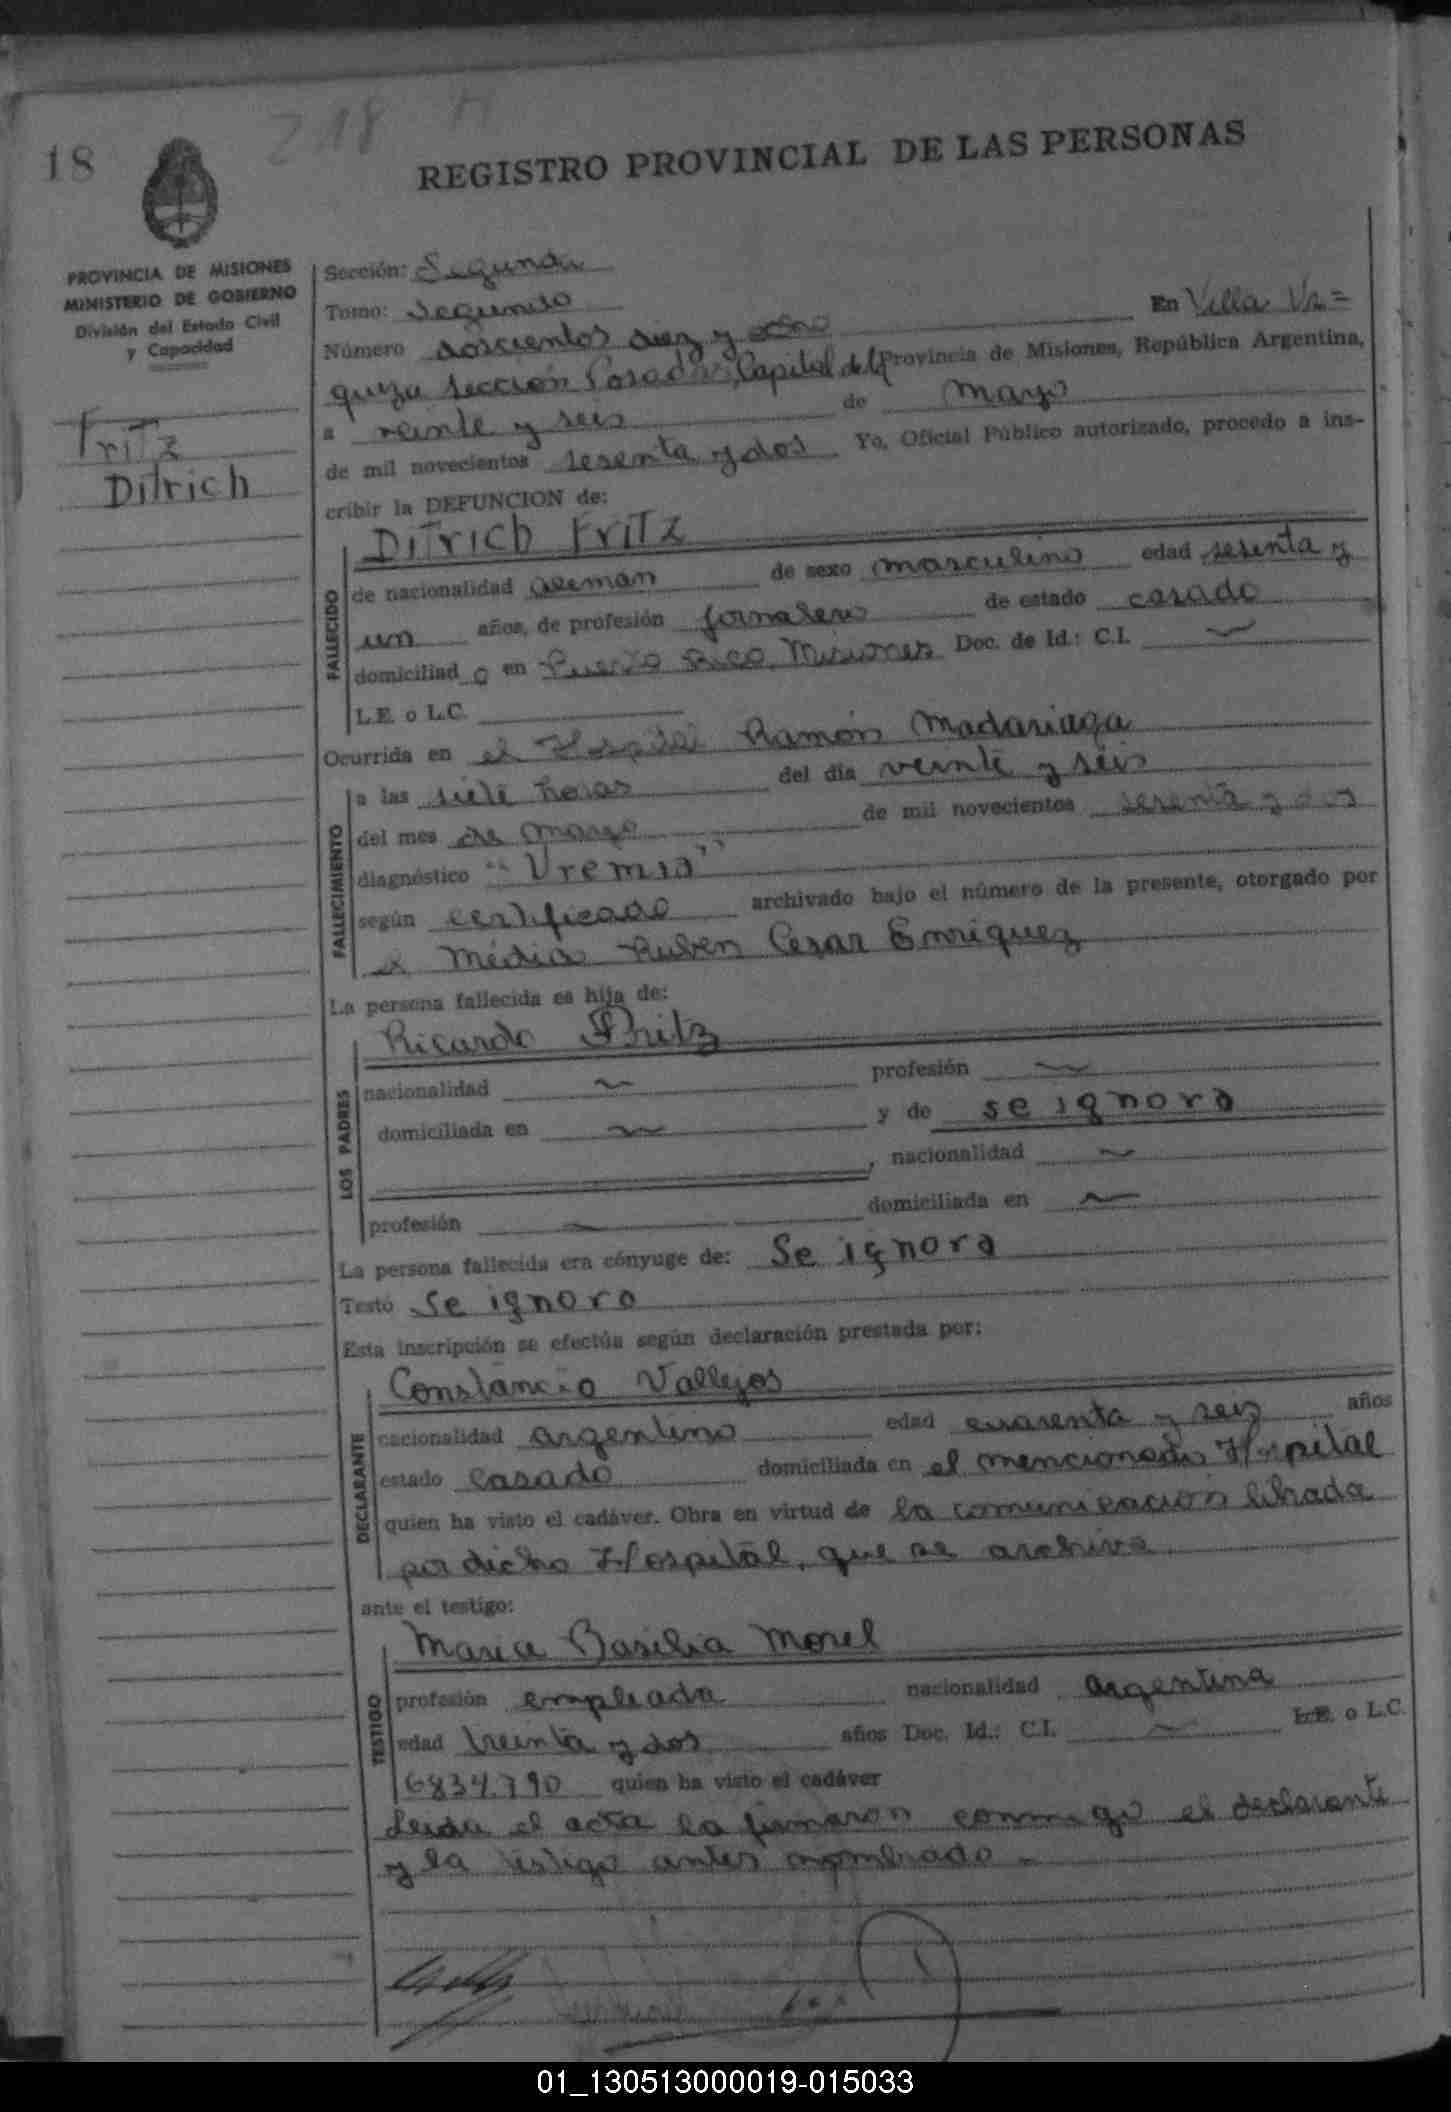 18
218
REGISTRO PROVINCIAL DE LAS PERSONAS
PROVINCIA DE MISIONES
MINISTERIO DE GOBIERNO
División del Estado Civil
y Capacidad
Fritz
Ditrich
Sección: Segunda
Tomo: Segundo
Número doscientos diez y ocho En Villa Ur=
quiza sección Posadas, Capital de la Provincia de Misiones, República Argentina,
a veinte y seis de Mayo
de mil novecientos sesenta y dos Yo, Oficial Público autorizado, procedo a ins-
cribir la DEFUNCION de:
FALLECIDO
Ditrich Fritz
de nacionalidad aleman de sexo masculino edad sesenta y
un años, de profesión jornalero de estado casado
domiciliad o en Puerto Rico, Misiones Doc. de Id.: C.I.
L.E. o L.C.
Ocurrida en el Hospital Ramón Madariaga
FALLECIMIENTO
a las siete horas del día veinte y seis
del mes de mayo de mil novecientos sesenta y dos
diagnóstico "Uremia"
según certificado archivado bajo el número de la presente, otorgado por
el Médico Ruben Cesar Enriquez
La persona fallecida es hija de:
LOS PADRES
Ricardo Fritz
nacionalidad profesión
domiciliada en y de se ignora
, nacionalidad
profesión domiciliada en
La persona fallecida era cónyuge de: Se ignora
Testó Se ignora
Esta inscripción se efectúa según declaración prestada por:
DECLARANTE
Constancio Vallejos
nacionalidad argentino edad cuarenta y seis años
estado casado domiciliada en el mencionado Hospital
quien ha visto el cadáver. Obra en virtud de la comunicación librada
por dicho Hospital, que se archiva
ante el testigo:
TESTIGO
Maria Basilia Morel
profesión empleada nacionalidad argentina
edad treinta y dos años Doc. Id.: C.I. L.E. o L.C.
6834.790 quien ha visto el cadáver
Leida el acta la firmaron conmigo el declarante
y la testigo antes nombrado
01_130513000019-015033